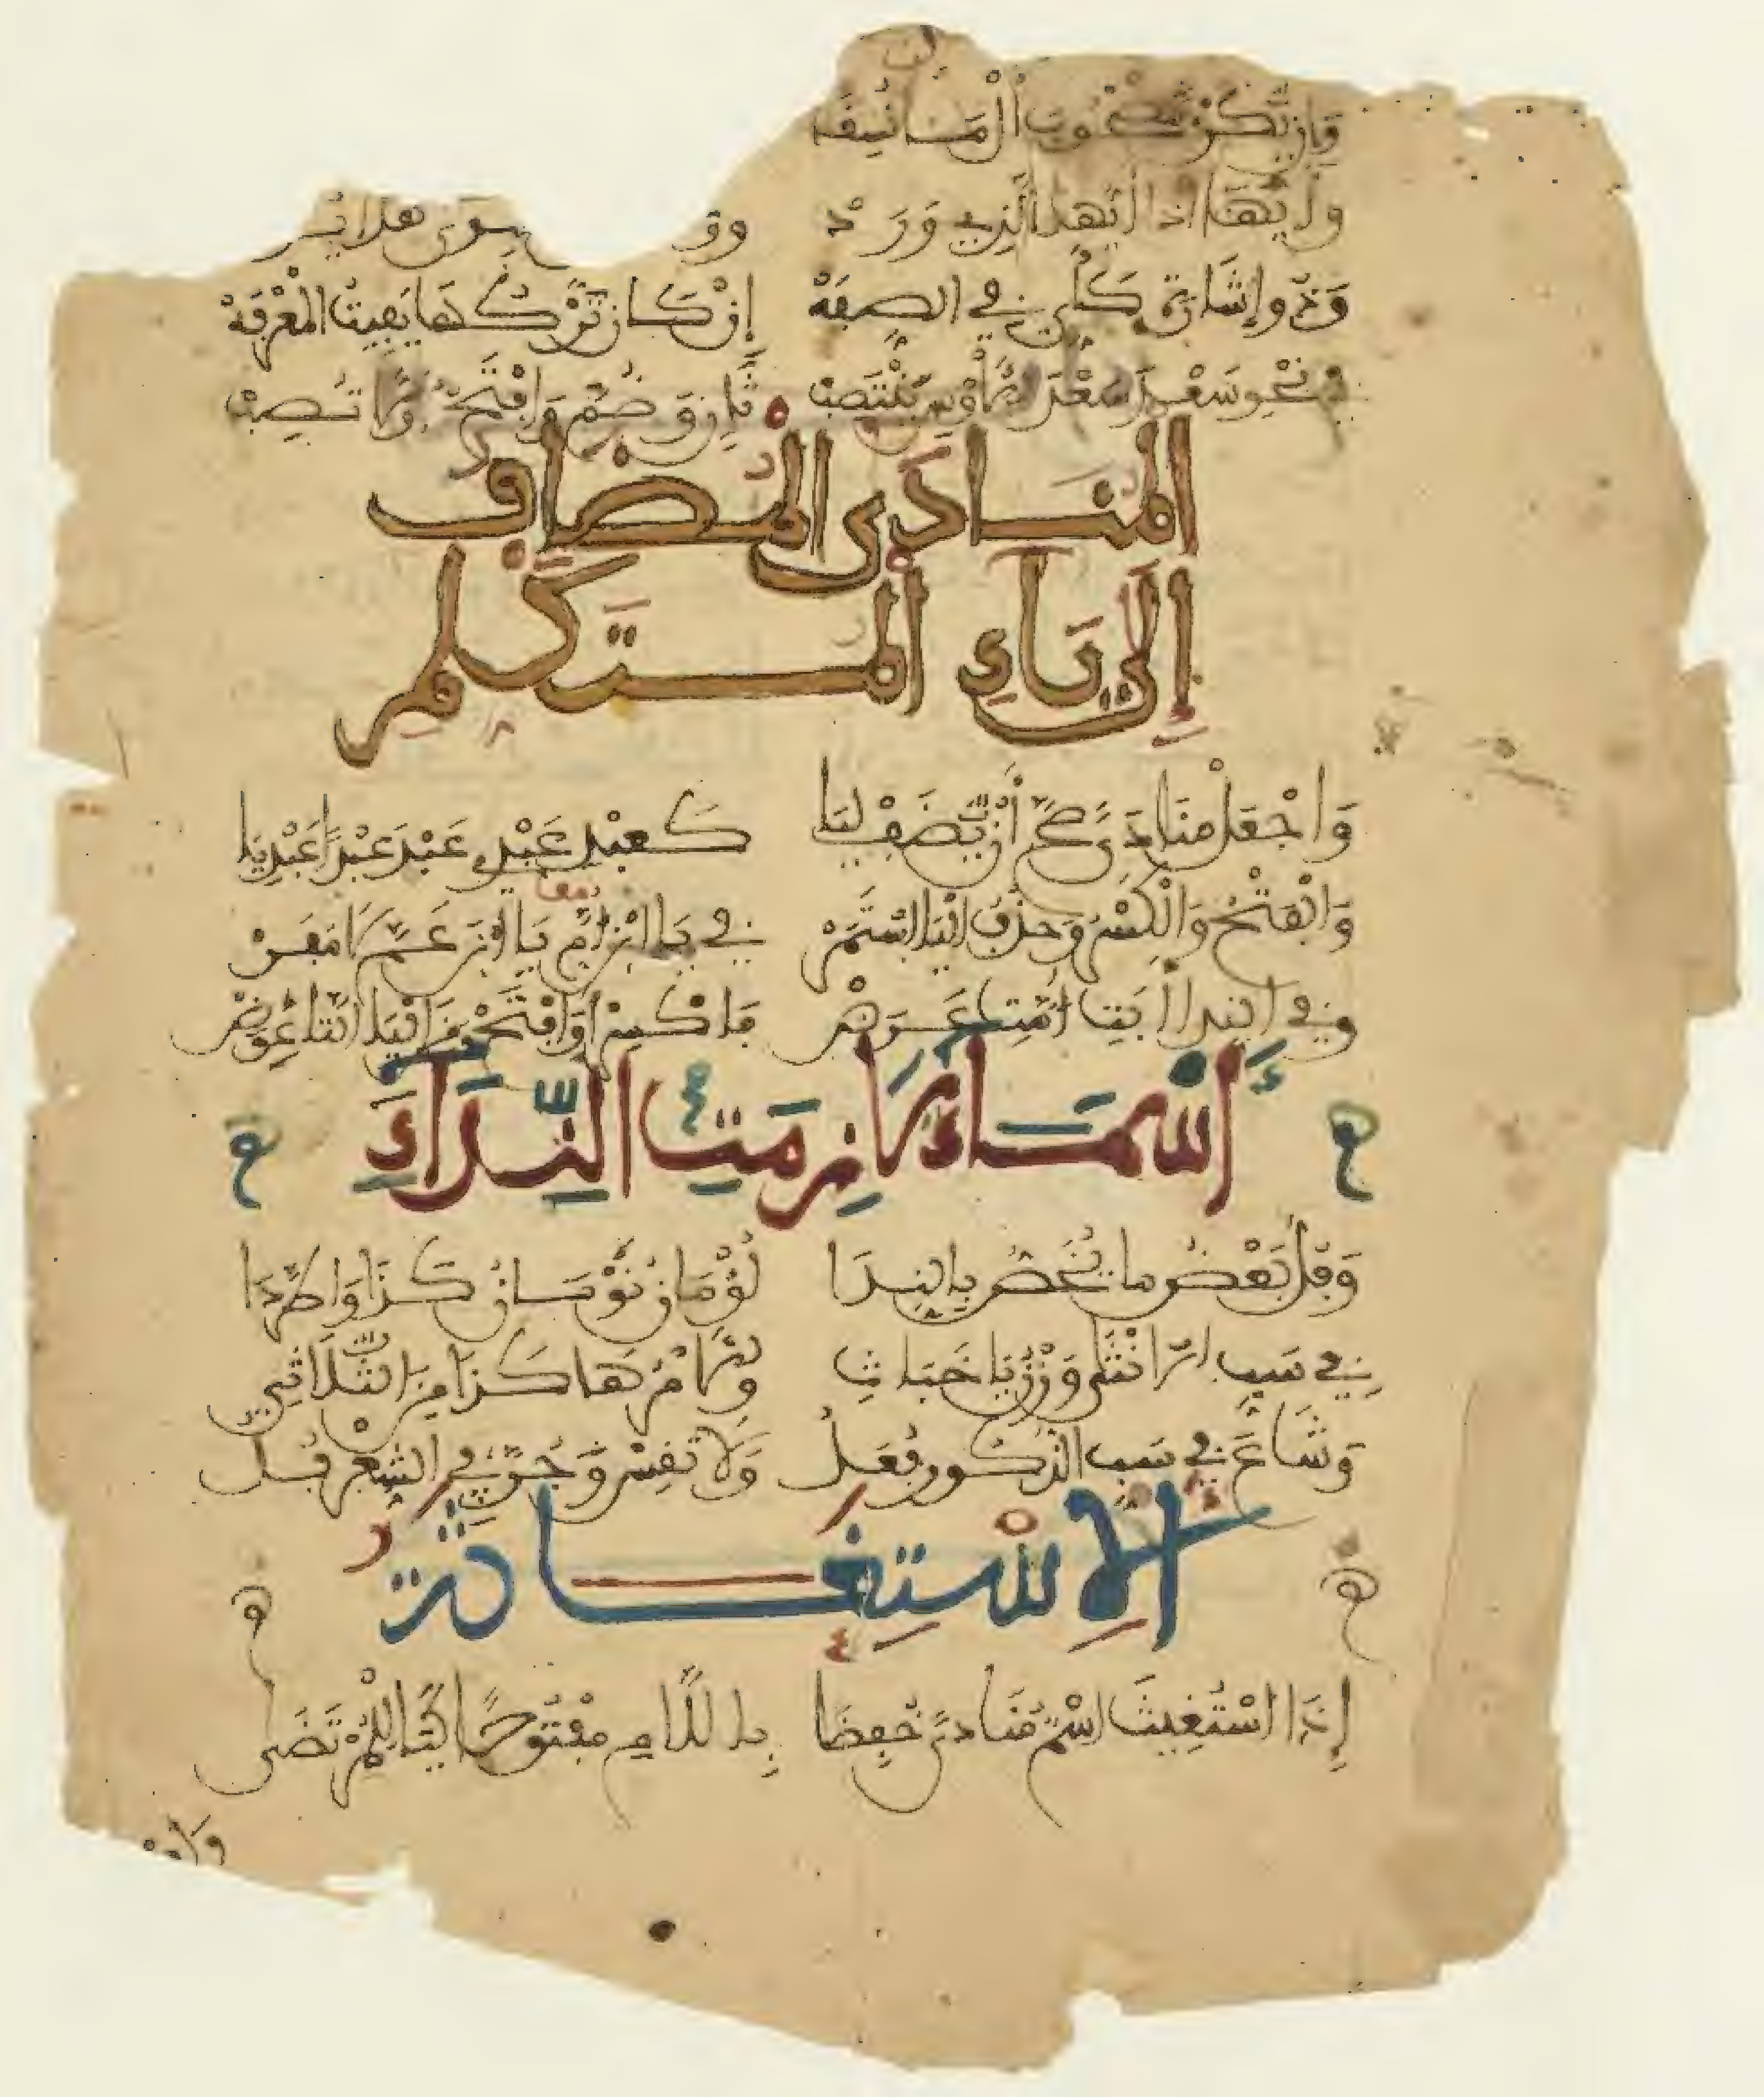 وَإِن يَّكُنْ مَصْحُوبَ أَلْ مَا نُسِقَ
وأيها ذا أيها الذي وَرَدْ سوى هذا يُر
وَذُو إِشَارَةٍ كَأَيٍّ في الصِّفَهْ إِنْ كَانَ تَرْكُهَا يُفِيتُ الْمَعْرِفَهْ
في نَحْوِ سَعْدُ سَعْدَ الاوْسِ يَنْتَصِبْ ثَانٍ وَضُمَّ وَافْتَحْ أَوَّلًا تُصِبْ
الْمُنَادَى الْمُضَافُ
إِلَى يَاءِ الْمُتَكَلِّمِ
وَاجْعَلْ مُنَادًى صَحَّ أَنْ يُّضَفْ لِيَا كَعَبْدِ عَبْدِي عَبْدَ عَبْدَا عَبْدِيَا
وَالْفَتْحُ وَالْكَسْرُ وَحَذْفُ الْيَا اسْتَمَرْ في يَا ابْنَ أُمَّ يَا ابْنَ عَمَّ لَا مَفَرْ
معا
وفي النِّدَا أَبَتِ أُمَّتِ عَرَضْ فَاكْسِرْ أَوِ افْتَحْ وَمِنَ الْيَا التَّا عِوَضْ
أَسْمَاءٌ لَازَمَتِ النِّدَاءَ
وَفُلُ بَعْضُ مَا يُخَصُّ بِالنِّدَا لُؤْمَانُ نَوْمَانُ كَذَا وَاطَّرَدَا
في سَبِّ الانْثَى وَزْنُ يَا خَبَاثِ وَالامْرُ هَاكَذَا مِنَ الثُّلَاثِي
وَشَاعَ في سَبِّ الذُّكُورِ فُعَلُ وَلَا تَقِسْ وَجُرَّ فِي الشِّعْرِ فُلُ
الِاسْتِغَاثَةُ
إِذَا اسْتُغِيثَ اسْمٌ مُنَادًى خُفِضَا بِاللَّامِ مَفْتُوحًا كَيَا لَلْمُرْتَضَى